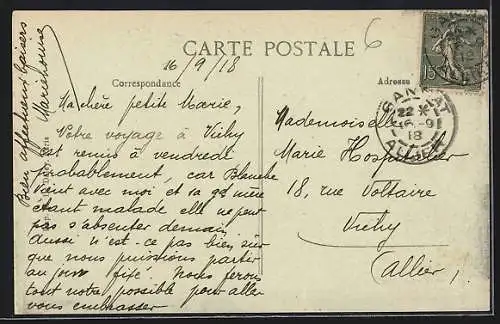 CARTE POSTALE
6
16/9/18
Correspondance
Adresse
15
GANNAT
22 *
16-9
18
ALLIER
Ma chère petite Marie,
Votre voyage à Vichy
est remis à vendredi
probablement, car Blanche
vient avec moi et sa gd mère
étant malade elle ne peut
pas s'absenter demain
aussi n'est-ce pas bien sûr
que nous puissions partir
au jour fixé. Nous ferons
tout notre possible pour aller
vous embrasser
Bien affectueux baisers
Marie Louise
Mademoiselle
Marie Hospitalier
18, rue Voltaire
Vichy
(Allier)